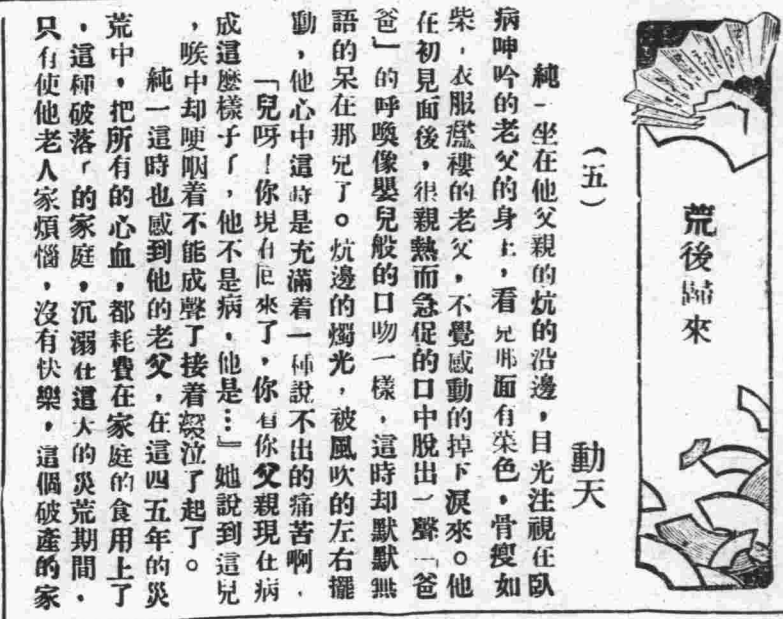 荒後歸來
動天
(五)
純一坐在他父親的炕的沿邊，目光注視在臥
病呻吟的老父的身上，看見那面有菜色，骨瘦如
柴，衣服襤褸的老父，不覺感動的掉下淚來。他
在初見面後，很親熱而急促的口中脫出一聲「爸
爸」的呼喚像嬰兒般的口吻一樣，這時却默默無
語的呆在那兒了。炕邊的燭光，被風吹的左右擺
動，他心中這時是充滿着一種說不出的痛苦啊，
「兒呀！你現在回來了，你看你父親現在病
成這麼樣子了，他不是病，他是…』她說到這兒
，喉中却哽咽着不能成聲了接着啜泣了起了。
純一這時也感到他的老父，在這四五年的災
荒中，把所有的心血，都耗費在家庭的食用上了
，這種破落了的家庭，沉溺在這大的災荒期間，
只有使他老人家煩惱，沒有快樂，這個破產的家